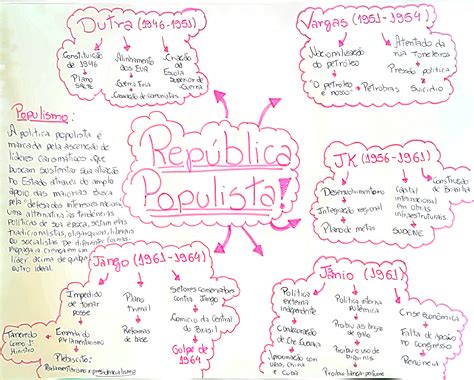 Dutra (1946-1951)
Constituição
de 1946
Plano
SALTE
Alinhamento
dos EUA
Guerra Fria
Cassação de comunistas
Criação da
Escola
Superior de
Guerra
Vargas (1951-1954)
Nacionalização
do petróleo
"O petróleo é
nosso"
Petrobras
Atentado da
rua Toneleros
Pressão política
Suicídio
Populismo:
A política populista é
marcada pela ascensão de
líderes carismáticos que
buscam sustentar sua atuação
no Estado através do amplo
apoio das maiorias. Busca
pela "defesa dos interesses nacionais"
uma alternativa às tendências
políticas de sua época, sejam elas
tradicionalistas, oligárquicas, liberais
ou socialistas. De diferentes formas,
propaga a crença em um
líder acima de qualquer
outro ideal.
República
Populista!
JK (1956-1961)
Desenvolvimentismo
Integração regional
Plano de metas
Capital
internacional
em obras
infraestruturais
SUDENE
Construção
de Brasília
Jango (1961-1964)
Impedido
de tomar
posse
Emenda do
Parlamentarismo
Tancredo
como 1º
Ministro
Plebiscito:
Parlamentarismo x presidencialismo
Plano
Trienal
Reformas
de base
Setores conservadores
contra Jango
Comício da Central
do Brasil
Golpe de
1964
Jânio (1961)
Política
externa
independente
Condecoração
de Che Guevara
Aproximação com
URSS, China
e Cuba
Política
interna
polêmica
Proibiu as brigas
de galo
Proibiu o uso de
biquínis
Proibiu lança-perfume
Crise econômica
Falta de apoio
no congresso
Renúncia